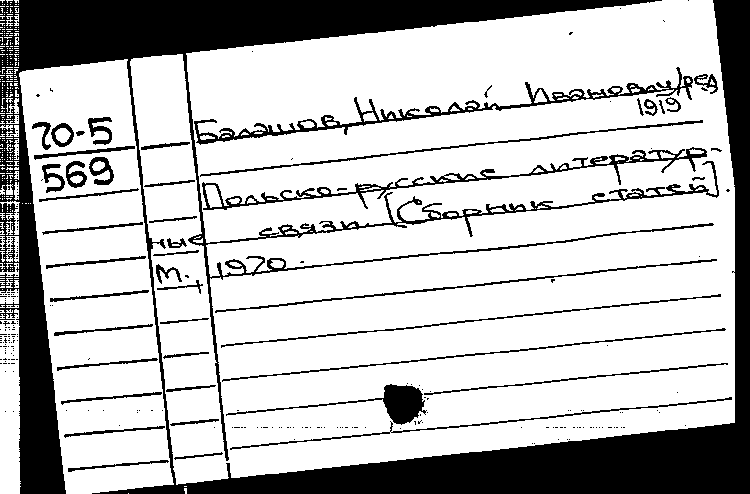 70-5
569
Балашов, Николай Иванович/ред
1919
Польско-русские литератур-
ные связи [Сборник статей].
М., 1970.